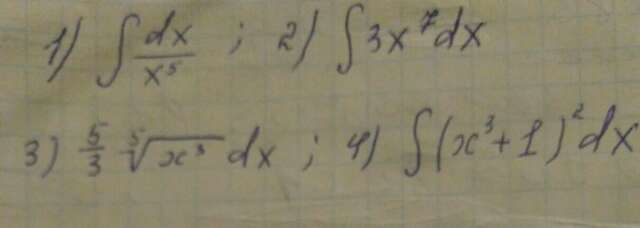 1) ∫ dx/x⁵ ; 2) ∫ 3x⁷dx
3) 5/3 ⁵√x³ dx ; 4) ∫(x³+1)²dx